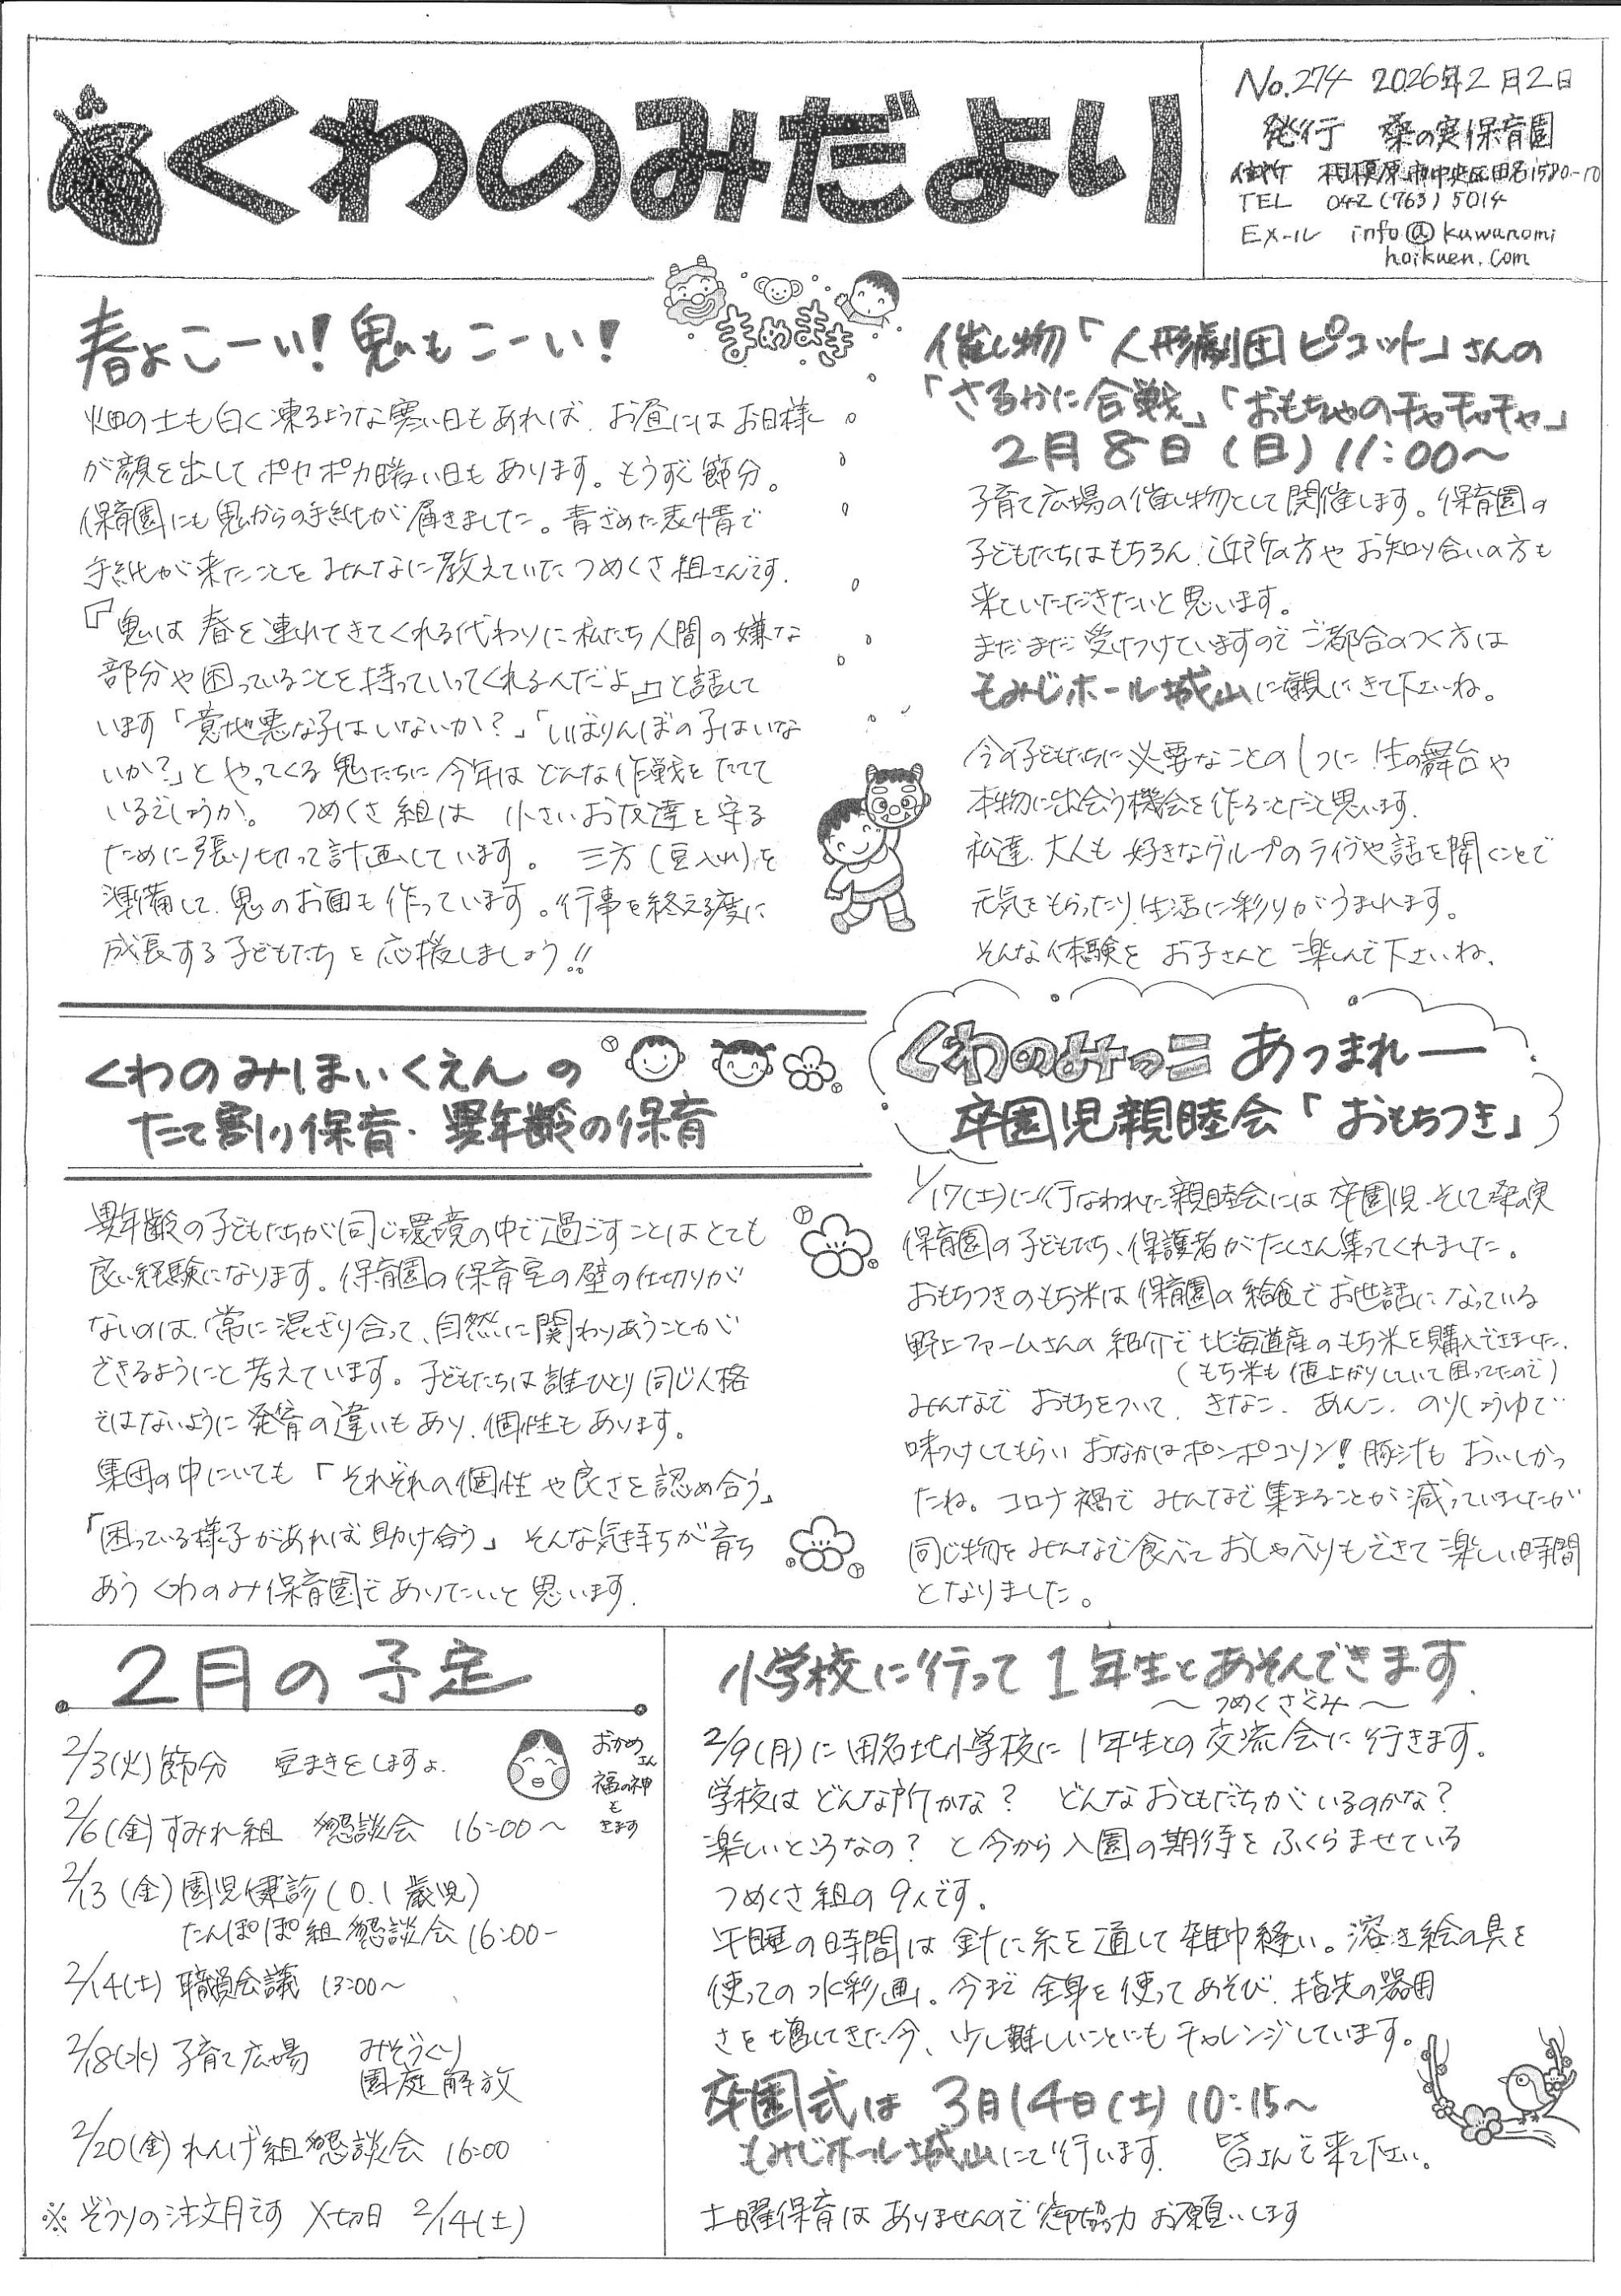 くわのみだより
No.274 2026年2月2日
発行 桑の実保育園
住所 相模原市中央区田名1580-10
TEL 042(763)5014
Eメール info@kuwanomi
hoikuen.com
まめまき
春よこーい!鬼もこーい!
畑の土も白く凍るような寒い日もあれば、お昼にはお日様
が顔を出してポカポカ暖い日もあります。もうすぐ節分。
保育園にも鬼からの手紙が届きました。青ざめた表情で
手紙が来たことをみんなに教えていたつめくさ組さんです.
『鬼は春を連れてきてくれる代わりに私たち人間の嫌な
部分や困っていることを持っていってくれるんだよ』と話して
います「意地悪な子はいないか?」「いばりんぼの子はいな
いか?」とやってくる鬼たちに今年はどんな作戦をたてて
いるでしょうか。 つめくさ組は 小さいお友達を守る
ために張り切って計画しています。 三方(豆入れ)を
準備して、鬼のお面も作っています。行事を終える度に
成長する子どもたちを応援しましょう!!
催し物「人形劇団ピコット」さんの
「さるかに合戦」「おもちゃのチャチャチャ」
2月8日(日)11:00〜
子育て広場の催し物として開催します。保育園の
子どもたちはもちろん、近所の方やお知り合いの方も
来ていただきたいと思います。
まだまだ受けつけていますのでご都合のつく方は
もみじホール城山に観にきて下さいね。
今の子どもたちに必要なことの1つに、生の舞台や
本物に出会う機会を作ることだと思います.
私達、大人も好きなグループのライブや話を聞くことで
元気をもらったり、生活に彩りがうまれます。
そんな体験をお子さんと楽しんで下さいね.
くわのみほいくえんの
たて割り保育・異年齢の保育
異年齢の子どもたちが同じ環境の中で過ごすことはとても
良い経験になります。保育園の保育室の壁の仕切りが
ないのは、常に混ざり合って、自然に関わりあうことが
できるようにと考えています。子どもたちは誰ひとり同じ人格
ではないように発育の違いもあり、個性もあります。
集団の中にいても「それぞれの個性や良さを認め合う」
「困っている様子があれば助け合う」そんな気持ちが育ち
あうくわのみ保育園でありたいと思います.
くわのみっこ あつまれー
卒園児親睦会「おもちつき」
1/17(土)に行なわれた親睦会には卒園児、そして桑の実
保育園の子どもたち、保護者がたくさん集ってくれました。
おもちつきのもち米は保育園の給食でお世話になっている
野上ファームさんの紹介で北海道産のもち米を購入できました.
(もち米も値上がりしていて困ってたので)
みんなでおもちをついて、きなこ、あんこ、のりしょうゆで
味つけしてもらいおなかはポンポコリン!豚汁もおいしかっ
たね。コロナ禍でみんなで集まることが減っていましたが
同じ物をみんなで食べておしゃべりもできて楽しい時間
となりました。
2月の予定
2/3(火)節分 豆まきをしますよ.
おかめさん
福の神も
きます
2/6(金)すみれ組 懇談会 16:00〜
2/13(金)園児健診(0.1歳児)
たんぽぽ組懇談会16:00-
2/14(土)職員会議 13:00〜
2/18(水)子育て広場 みそづくり
園庭解放
2/20(金)れんげ組懇談会 16:00
※ぞうりの注文月です 〆切日 2/14(土)
小学校に行って1年生とあそんできます.
〜つめくさぐみ〜
2/9(月)に田名北小学校に1年生との交流会に行きます。
学校はどんな所かな? どんなおともだちがいるのかな?
楽しいところなの?と今から入園の期待をふくらませている
つめくさ組の9人です。
午睡の時間は針に糸を通して雑巾縫い。溶き絵の具を
使っての水彩画。今まで全身を使ってあそび、指先の器用
さを増してきた今、少し難しいことにもチャレンジしています。
卒園式は3月14日(土)10:15〜
もみじホール城山にて行います. 皆さんで来て下さい。
土曜保育はありませんので御協力お願いします